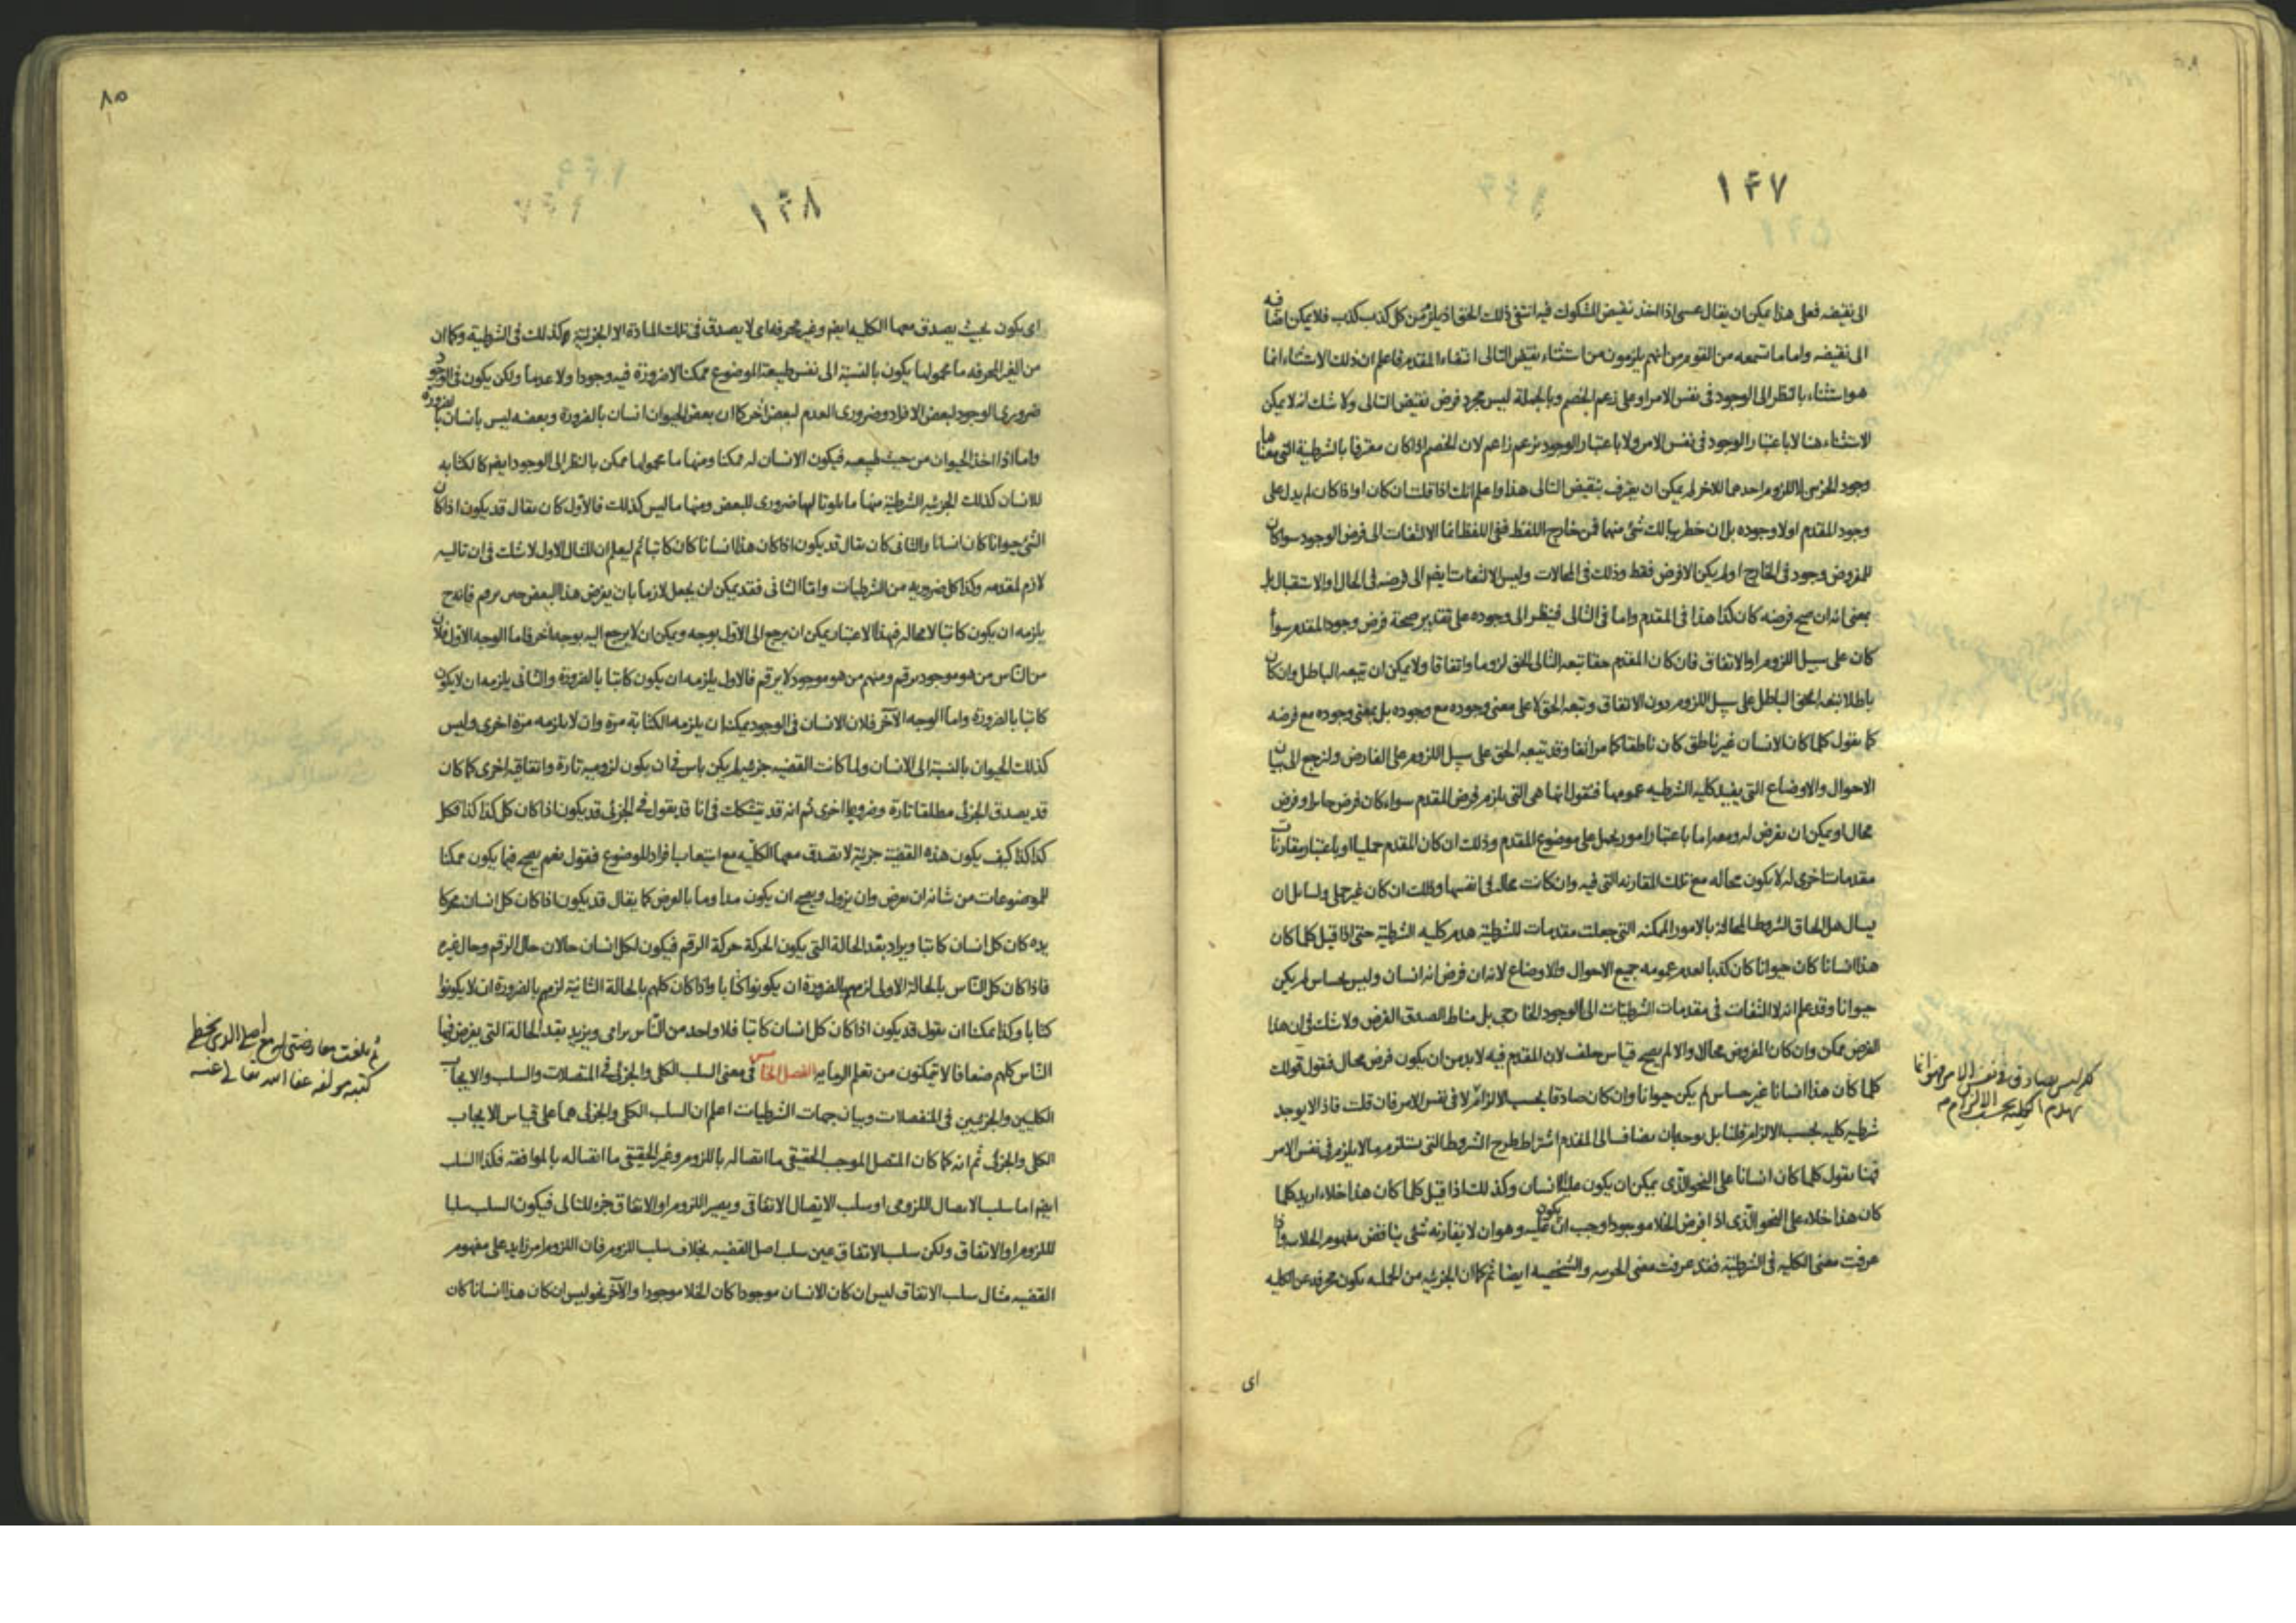 ١٤٧
الى نقيضه فعلى هذا يمكن ان يقال عسى اذا اخذ نقيض المشكوك فيه انتفى ذلك الحق اذ يلزم من كل كذب كذب فلا يمكن اضافه
الى نقيضه واما ما تسمعه من القوم من انهم يلزمون من استثناء نقيض التالى انتفاء المقدم فاعلم ان ذلك الاستثناء انما
هو استثناء بالنظر الى الوجود فى نفس الامر او على زعم الخصم وبالجملة ليس مجرد فرض نقيض التالى ولا شك انه لا يمكن
الاستثناء هنا لا باعتبار الوجود فى نفس الامر ولا باعتبار الوجود بزعم زاعم لان الخصم اذا كان معترفا بالشرطية التى معناها
وجود الجزئين للزوم احدهما للاخر لم يمكن ان يعترف بنقيض التالى هذا واعلم انك اذا قلت ان كان او اذا كان لم يدل على
وجود المقدم او لا وجوده بل ان خطر ببالك شئ منهما فمن خارج اللفظ ففى اللفظ انما الالتفات الى فرض الوجود سواء كان
للمفروض وجود فى الخارج او لم يكن الا فرض فقط وذلك فى المحالات وليس الالتفات ايضا الى فرضه فى الحال او الاستقبال بل
بمعنى انه ان صح فرضه كان كذا هذا فى المقدم واما فى التالى فينظر الى وجوده على تقدير صحة فرض وجود المقدم سواء
كان على سبيل اللزوم او الاتفاق فان كان المقدم حقا تبعه التالى الحق لزوما واتفاقا ولا يمكن ان يتبعه الباطل وان كان
باطلا تبعه الحق الباطل على سبيل اللزوم دون الاتفاق وتبعه الحق لا على معنى وجوده مع وجوده بل بمعنى وجوده مع فرضه
كما يقول كلما كان الانسان غير ناطق كان ناطقا كما مر انفا وقد تبعه الحق على سبيل اللزوم على الفارض ولنرجع الى بيان
الاحوال والاوضاع التى يفيد كليه الشرطيه عمومها فنقول انها هى التى يلزم فرض المقدم سواء كان فرض جايز او فرض
محال او يمكن ان يفرض له ومعه اما باعتبار امور يحمل على موضوع المقدم وذلك ان كان المقدم حمليا او باعتبار مقارنات
مقدمات اخرى له لا يكون محاله مع تلك المقارنه التى فيه وان كانت محاله فى انفسها وذلك ان كان غير حملى ولسائل ان
يسال هل الحاق الشروط المحالة بالامور الممكنه التى جعلت مقدمات للشرطية هدم كليه الشرطية حتى اذا قيل كلما كان
هذا انسانا كان حيوانا كان كذبا لعدم عمومه جميع الاحوال والاوضاع لانه ان فرض انه انسان وليس بحساس لم يكن
حيوانا وقد علم انه لا التفات فى مقدمات الشرطيات الى الوجود الخارجى بل مناط الصدق الفرض ولا شك فى ان هذا
الفرض ممكن وان كان المفروض محالا والا لم يصح قياس خلف لان المقدم فيه لا بد من ان يكون فرض محال فنقول قولك
كلما كان هذا انسانا غير حساس لم يكن حيوانا وان كان صادقا بحسب الالزام لا فى نفس الامر فان قلت فاذا لا يوجد
شرطيه كليه بحسب الالزام قلنا بل يوجد بان يضاف الى المقدم اشتراط طرح الشروط التى يستلزم ما لا يلزم فى نفس الامر
فهنا يقول كلما كان انسانا على النحو الذى يمكن ان يكون عليه الانسان وكذلك اذا قيل كلما كان هذا خلاء اريد كلما
كان هذا خلاء على النحو الذى اذا فرض الخلا موجودا وجب ان يكون عليه وهو ان لا يقارنه شئ يناقض مفهوم الخلاء واذا
عرفت معنى الكليه فى الشرطية فقد عرفت معنى الجزئيه والشخصيه ايضا ثم كما ان الجزئيه من الحمليه يكون محرفه عن الكليه
اى
فى نفس الامر فهو انما
يهدم الكلية بحسب الالزام
٨٥
١٤٨
اى يكون بحيث يصدق معها الكليه ايضا وغير محرفه اى لا يصدق فى تلك المادة الا الجزئية وكذلك فى الشرطية وكما ان
من الغير المحرفه ما محمولها يكون بالنسبة الى نفس طبيعة الموضوع ممكنا لا ضرورة فيه وجودا ولا عدما ولكن يكون فى الوجود
ضرورى الوجود لبعض الافراد وضرورى العدم لبعض اخر كما ان بعض الحيوان انسان بالضرورة وبعضه ليس بانسان بالضرورة
واما اذا اخذ الحيوان من حيث طبيعه فيكون الانسان له ممكنا ومنها ما محمولها ممكن بالنظر الى الوجود ايضا كالكتابه
للانسان كذلك الجزئيه الشرطية منها ما تلوتاليها ضرورى للبعض ومنها ما ليس كذلك فالاول كان يقال قد يكون اذا كان
الشئ حيوانا كان انسانا والثانى كان يقال قد يكون اذا كان هذا انسانا كان كاتبا ثم ليعلم ان المثال الاول لا شك فى ان تاليه
لازم لمقدمه وكذا كل ضروريه من الشرطيات واما الثانى فقد يمكن ان يجعل لازما بان يفرض هذا البعض حين يرقم فانه ح
يلزمه ان يكون كاتبا لا محاله فهذا الاعتبار يمكن ان يرجع الى الاول بوجه ويمكن ان لا يرجع اليه بوجه اخر فاما الوجه الاول فلان
من الناس من هو موجود يرقم ومنهم من هو موجود لا يرقم فالاول يلزمه ان يكون كاتبا بالضرورة والثانى يلزمه ان لا يكون
كاتبا بالضرورة واما الوجه الآخر فلان الانسان فى الوجود يمكن ان يلزمه الكتابة مرة وان لا يلزمه مرة اخرى وليس
كذلك الحيوان بالنسبة الى الانسان ولما كانت القضيه جزئيه لم يكن باس فى ان يكون لزوميه تارة واتفاقيه اخرى كما كان
قد يصدق الجزئى مطلقا تارة وضروريا اخرى ثم انه قد يتشكك فى انا قد يقول فى الجزئى قد يكون اذا كان كل كذا كذا فكل
كذا كذا كيف يكون هذه القضية جزئية لا تصدق معها الكلية مع استيعاب افراد الموضوع فنقول نعم يصح فيما يكون ممكنا
للموضوعات من شانه ان يعرض وان يزول ويصح ان يكون مدا وما بالعرض كما يقال قد يكون اذا كان كل انسان محركا
يده كان كل انسان كاتبا ويراد بهذه الحالة التى يكون الحركة حركة الرقم فيكون لكل انسان حالان حال الرقم وحال غيره
فاذا كان كل الناس بالحالة الاولى لزمهم بالضرورة ان يكونوا كتابا واذا كان كلهم بالحالة الثانية لزمهم بالضرورة ان لا يكونوا
كتابا وكذا يمكننا ان يقول قد يكون اذا كان كل انسان كاتبا فلا واحد من الناس برامى ويريد بهذه الحالة التى يفرض فيها
الناس كلهم ضعافا لا يتمكنون من تعلم الرمايه الفصل الخامس فى معنى السلب الكلى والجزئى فى المتصلات والسلب والايجاب
الكليين والجزئيين فى المنفصلات وبيان جهات الشرطيات اعلم ان السلب الكلى والجزئى هما على قياس الايجاب
الكلى والجزئى ثم انه كما كان المتصل الموجب الحقيقى ما اتصاله باللزوم وغير الحقيقى ما اتصاله بالموافقه فكذا السلب
ايضا اما سلب الاتصال اللزومى او سلب الاتصال الاتفاقى ويصير اللزوم او الاتفاق جزء للتالى فيكون السلب سلبا
للزوم او الاتفاق ولكن سلب الاتفاق عين سلب اصل القضيه بخلاف سلب اللزوم فان اللزوم امر زايد على مفهوم
القضيه مثال سلب الاتفاق ليس ان كان الانسان موجودا كان الخلا موجودا والآخر نحو ليس ان كان هذا انسانا كان
ثم بلغت معارضتى له مع اصلى الذى بخطى
كتبه مولفه عفا الله تعالى عنه